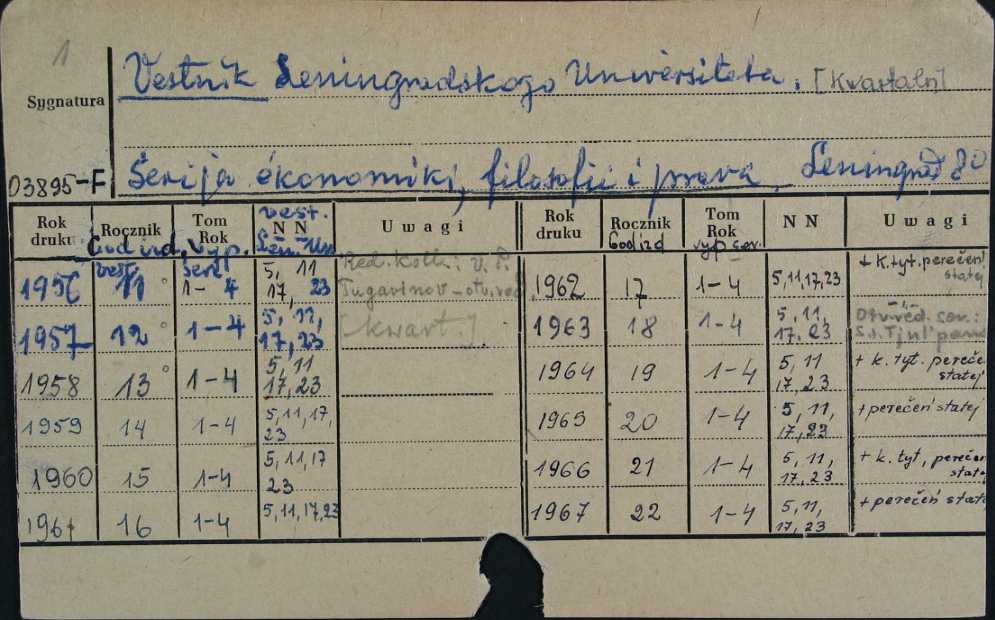 1
Vestnik Leningradskogo Universiteta. [Kwartaln]
Sygnatura
03895-F
Serija ekonomiki, filosofii i prava. Leningrad 8°
Rok druku Rocznik Tom Rok N N Uwagi Rok druku Rocznik Tom Rok N N Uwagi
God izd. vyp. vest. God izd vyp ser.
vest. serii
1956 11 1-4 5, 11 17, 23 Red. koll.: V. P. 1962 17 1-4 5,11,17,23 + k. tyt. perečen' statej
Tugarinov - otv. red.
1957 12 1-4 5, 11, 17, 23 [kwart.] 1963 18 1-4 5, 11, 17, 23 Otv. red. ser.:
1958 13 1-4 5, 11 17, 23 1964 19 1-4 5, 11 17, 23 + k. tyt. pereče statej
1959 14 1-4 5, 11, 17, 23 1965 20 1-4 5, 11, 17, 23 + perečen' statej
1960 15 1-4 5, 11, 17 23 1966 21 1-4 5, 11, 17, 23 + k. tyt, perečen state
1961 16 1-4 5, 11, 17, 23 1967 22 1-4 5, 11, 17, 23 + perečen' state